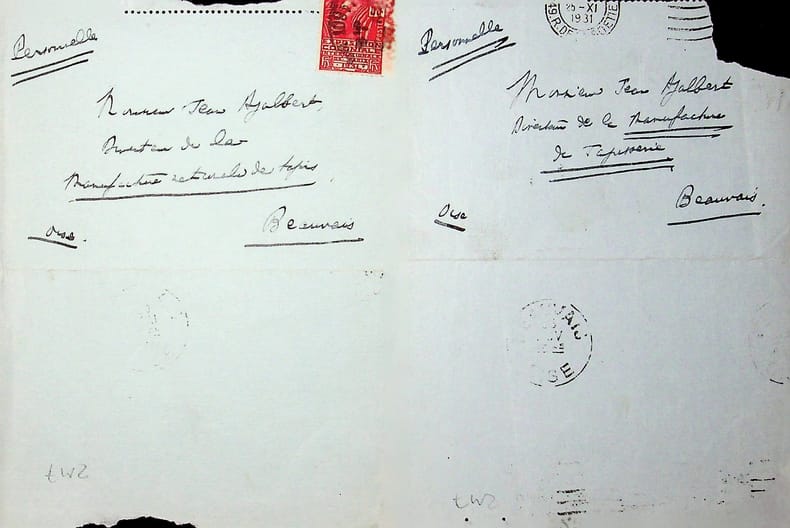 Personnelle
Monsieur Jean Ajalbert,
Directeur de la
Manufacture nationale de tapis
Beauvais
Oise.
EXPOSITION
COLONIALE
INTERNATIONALE
PARIS 1931
25 - XI
1931
Personnelle
Monsieur Jean Ajalbert
Directeur de la Manufacture
de Tapisserie
Beauvais.
Oise